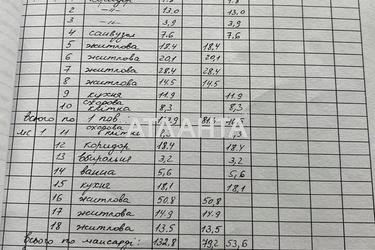 2 —"— 13.0 13.0
3 —"— 3,9 3,9
4 санвузол 7.6 7,6
5 житлова 18.4 18.4
6 житлова 20,1 20,1
7 житлова 28.4 28.4
8 житлова 14.5 14.5
9 кухня 11.9 11.9
10 сходова клітка 8,3 8,3
всього по 1 пов.:
11 сходова клітка
12 коридор 18.4 18.4
13 вбиральня 3,2 3,2
14 ванна 5,6 5,6
15 кухня 18,1 18,1
16 житлова 50,8 50,8
17 житлова 14.9 14.9
18 житлова 13,5 13,5
всього по мансарді: 132,8 79,2 53,6
АТЛАНТА